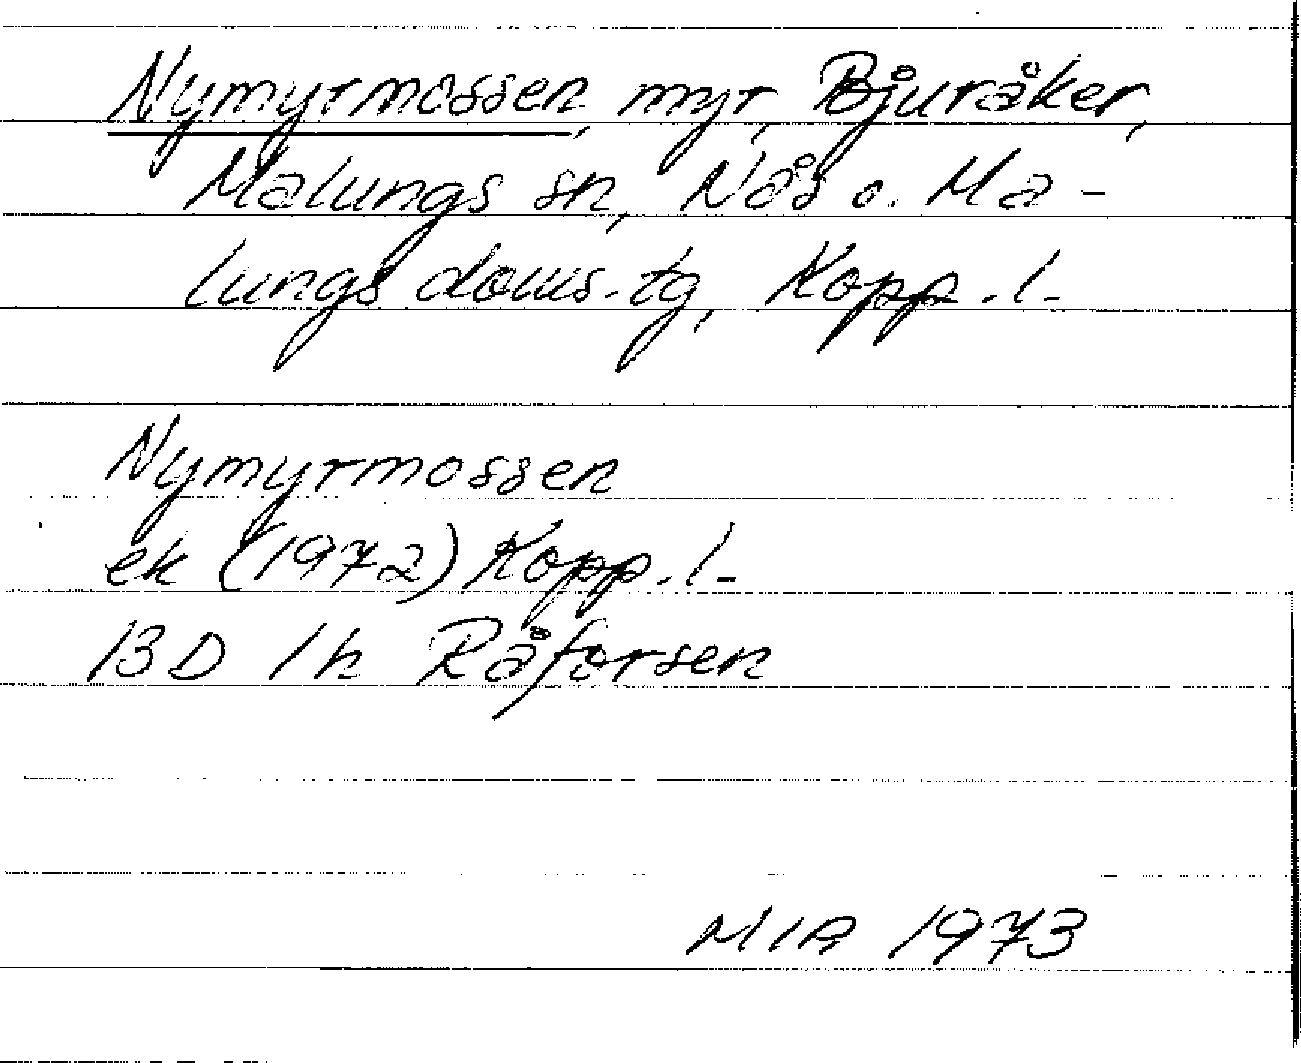 Nymyrmossen, myr, Bjuråker,
Malungs sn, Nås o. Ma-
lungs doms. tg, Kopp. l.
Nymyrmossen
ek (1972) Kopp. l.
13D 1h Råforsen
MIA 1973